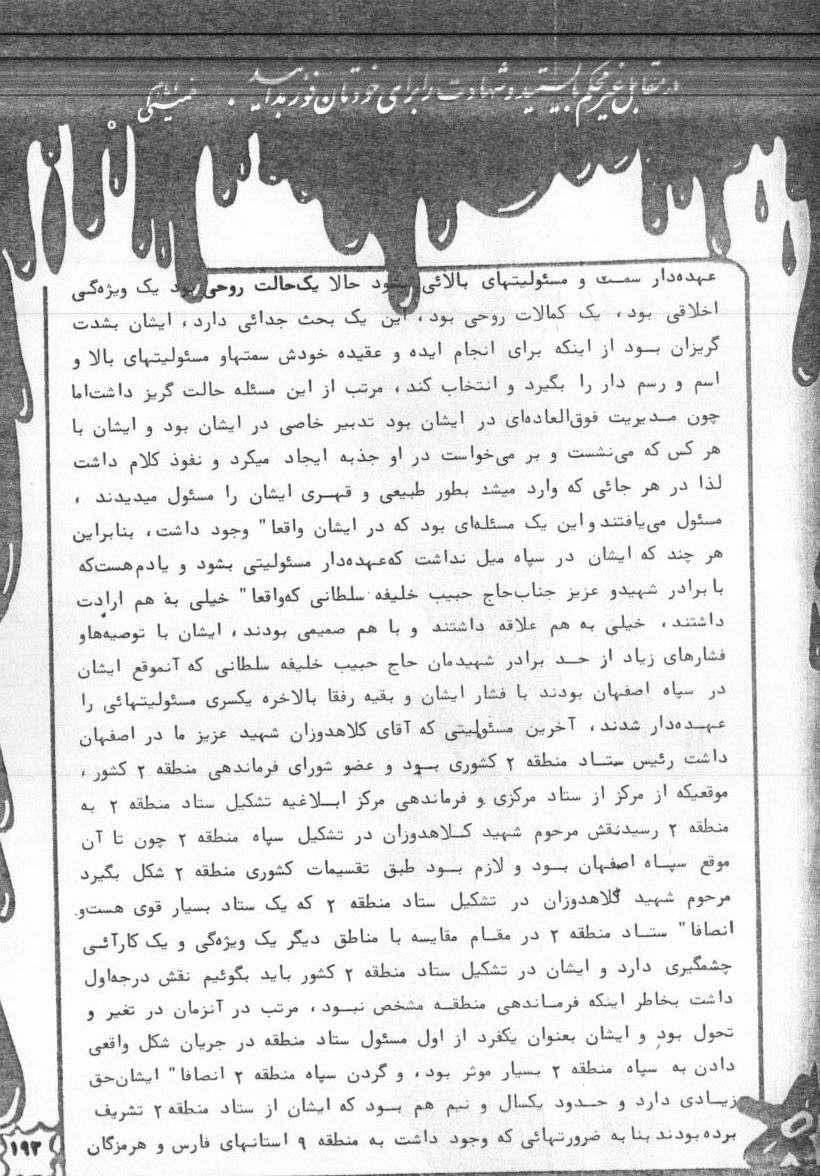 در مقابل غیر محکم بایستید و شهادت را برای خودتان فوز بدانید.
عهده‌دار سمـت و مسئولیتهای بالائی بشود حالا یک‌حالت روحی بود یک ویژه‌گـی
اخلاقی بود، یک کمالات روحی بود، این یک بحث جدائی دارد، ایشان بشدت
گریزان بـود از اینکه برای انجام ایده و عقیده خودش سمتهاو مسئولیتهای بالا و
اسم و رسم دار را بگیرد و انتخاب کند، مرتب از این مسئله حالت گریز داشت‌اما
چون مـدیریت فوق‌العاده‌ای در ایشان بود تدبیر خاصی در ایشان بود و ایشان با
هر کس که می‌نشست و بر می‌خواست در او جذبه ایجاد میکرد و نفوذ کلام داشت
لذا در هر جائی که وارد میشد بطور طبیعی و قهـری ایشان را مسئول میدیدند ،
مسئول می‌یافتند و این یک مسئله‌ای بود که در ایشان واقعا" وجود داشت، بنابراین
هر چند که ایشان در سپاه میل نداشت که‌عهـده‌دار مسئولیتی بشود و یادم‌هست‌که
با برادر شهیدو عزیز جناب‌حاج حبیب خلیفه سلطانی که‌واقعا" خیلی به هم ارادت
داشتند، خیلی به هم علاقه داشتند و با هم صمیمی بودند، ایشان با توصیه‌هاو
فشارهای زیاد از حـد برادر شهیدمان حاج حبیب خلیفه سلطانی که آنموقع ایشان
در سپاه اصفهان بودند با فشار ایشان و بقیه رفقا بالاخره یکسری مسئولیتهائی را
عهـده‌دار شدند، آخرین مسئولیتی که آقای کلاهدوزان شهید عزیز ما در اصفهان
داشت رئیس ستـاد منطقه ۲ کشوری بـود و عضو شورای فرماندهی منطقه ۲ کشور ،
موقعیکه از مرکز از ستاد مرکزی و فرماندهی مرکز ابـلاغیه تشکیل ستاد منطقه ۲ به
منطقه ۲ رسیدنقش مرحوم شهید کـلاهدوزان در تشکیل سپاه منطقه ۲ چون تا آن
موقع سپـاه اصفهان بـود و لازم بـود طبق تقسیمات کشوری منطقه ۲ شکل بگیرد
مرحوم شهید کلاهدوزان در تشکیل ستاد منطقه ۲ که یک ستاد بسیار قوی هست‌و.
انصافا" ستـاد منطقه ۲ در مقـام مقایسه با مناطق دیگر یک ویژه‌گی و یک کارآئـی
چشمگیری دارد و ایشان در تشکیل ستاد منطقه ۲ کشور باید بگوئیم نقش درجه‌اول
داشت بخاطر اینکه فرمـاندهی منطقـه مشخص نبـود، مرتب در آنزمان در تغیر و
تحول بود و ایشان بعنوان یکفرد از اول مسئول ستاد منطقه در جریان شکل واقعی
دادن به سپاه منطقه ۲ بسیار موثر بود، و گردن سپاه منطقه ۲ انصافا" ایشان‌حق
زیـادی دارد و حـدود یکسال و نیم هم بـود که ایشان از ستاد منطقه ۲ تشریف
برده‌بودند بنا به ضرورتهائی که وجود داشت به منطقه ۹ استانهای فارس و هرمزگان
۱۹۳